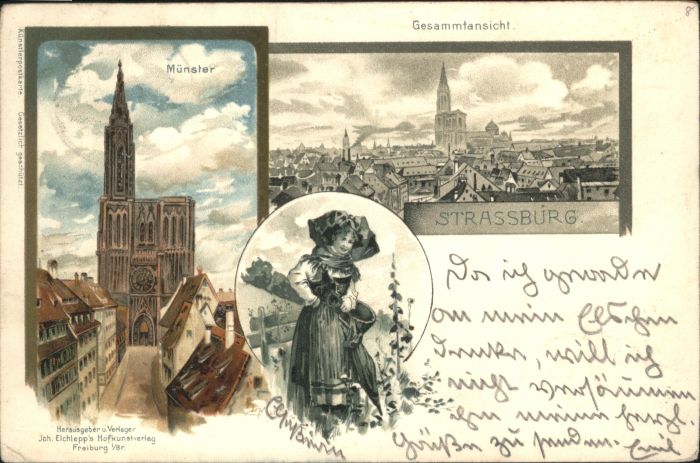 Gesammtansicht.
8
Künstlerpostkarte. Gesetzlich geschützt.
Münster
STRASSBURG
Da ich gerade
an mein Elschen
denke, will ich
nicht versäumen
ihr meine herzl.
Grüße zu senden. Emil
Herausgeber u. Verleger
Joh. Elchlepp's Hofkunstverlag
Freiburg i/Br.